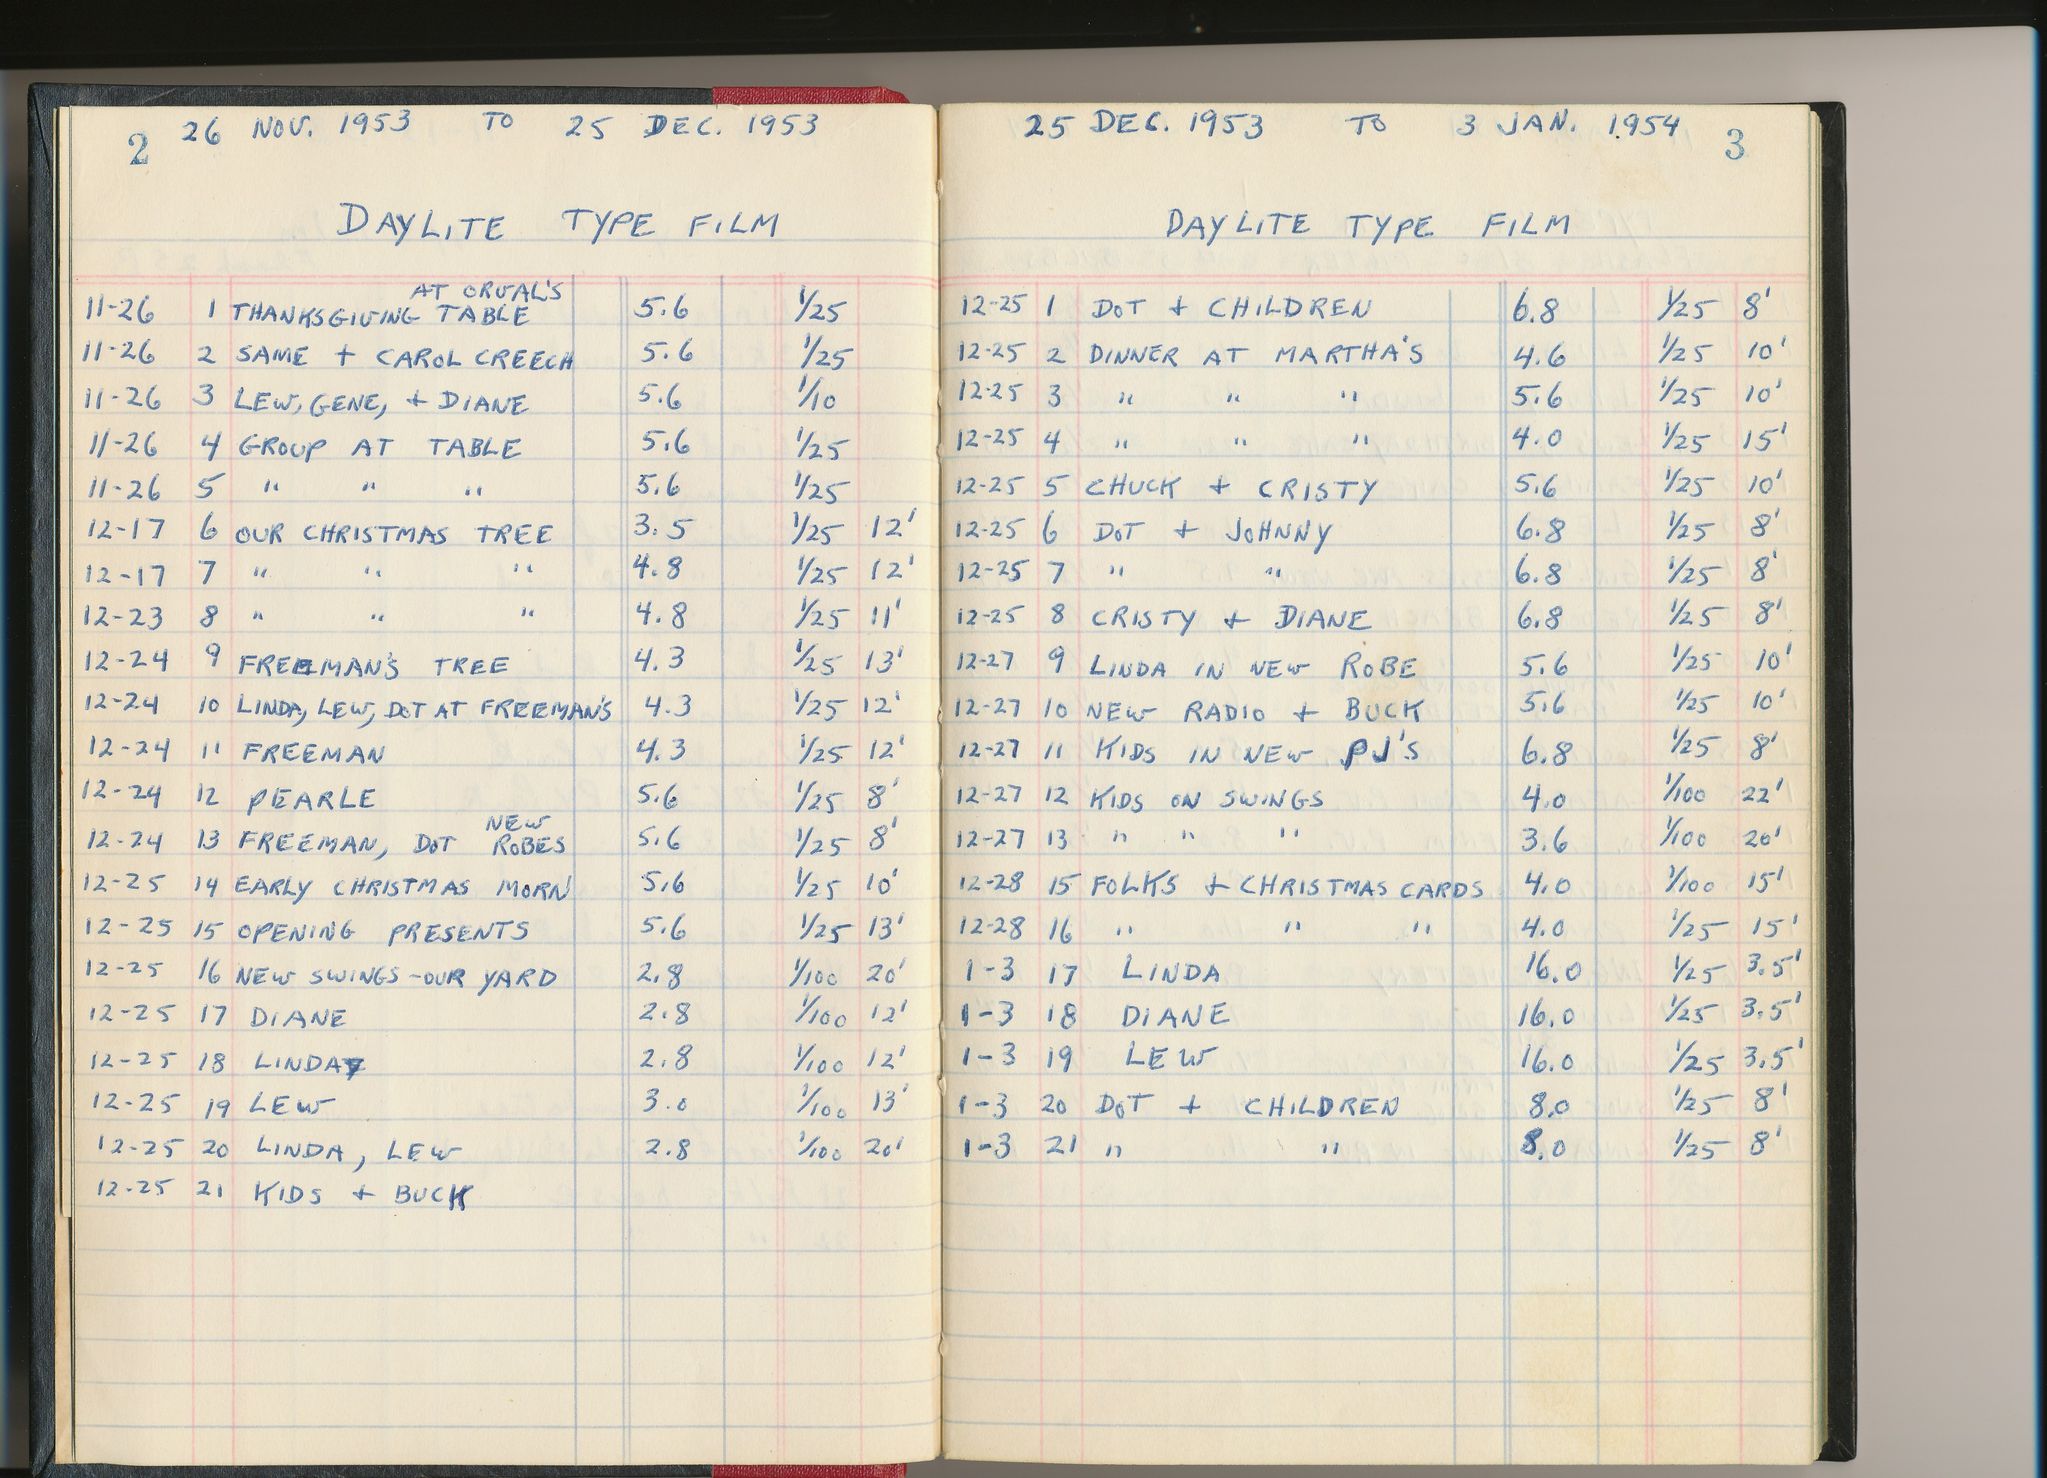 2 26 NOV. 1953 TO 25 DEC. 1953
DAYLITE TYPE FILM
AT ORVAL'S
11-26 1 THANKSGIVING TABLE 5.6 1/25
11-26 2 SAME + CAROL CREECH 5.6 1/25
11-26 3 LEW, GENE, + DIANE 5.6 1/10
11-26 4 GROUP AT TABLE 5.6 1/25
11-26 5 " " " 5.6 1/25
12-17 6 OUR CHRISTMAS TREE 3.5 1/25 12'
12-17 7 " " " 4.8 1/25 12'
12-23 8 " " " 4.8 1/25 11'
12-24 9 FREEMAN'S TREE 4.3 1/25 13'
12-24 10 LINDA, LEW, DOT AT FREEMAN'S 4.3 1/25 12'
12-24 11 FREEMAN 4.3 1/25 12'
12-24 12 PEARLE 5.6 1/25 8'
NEW
12-24 13 FREEMAN, DOT ROBES 5.6 1/25 8'
12-25 14 EARLY CHRISTMAS MORN 5.6 1/25 10'
12-25 15 OPENING PRESENTS 5.6 1/25 13'
12-25 16 NEW SWINGS-OUR YARD 2.8 1/100 20'
12-25 17 DIANE 2.8 1/100 12'
12-25 18 LINDA 2.8 1/100 12'
12-25 19 LEW 3.0 1/100 13'
12-25 20 LINDA, LEW 2.8 1/100 20'
12-25 21 KIDS + BUCK
25 DEC. 1953 TO 3 JAN. 1954 3
DAYLITE TYPE FILM
12-25 1 DOT + CHILDREN 6.8 1/25 8'
12-25 2 DINNER AT MARTHA'S 4.6 1/25 10'
12-25 3 " " " 5.6 1/25 10'
12-25 4 " " " 4.0 1/25 15'
12-25 5 CHUCK + CRISTY 5.6 1/25 10'
12-25 6 DOT + JOHNNY 6.8 1/25 8'
12-25 7 " " 6.8 1/25 8'
12-25 8 CRISTY + DIANE 6.8 1/25 8'
12-27 9 LINDA IN NEW ROBE 5.6 1/25 10'
12-27 10 NEW RADIO + BUCK 5.6 1/25 10'
12-27 11 KIDS IN NEW PJ'S 6.8 1/25 8'
12-27 12 KIDS ON SWINGS 4.0 1/100 22'
12-27 13 " " " 3.6 1/100 20'
12-28 15 FOLKS + CHRISTMAS CARDS 4.0 1/100 15'
12-28 16 " " " 4.0 1/25 15'
1-3 17 LINDA 16.0 1/25 3.5'
1-3 18 DIANE 16.0 1/25 3.5'
1-3 19 LEW 16.0 1/25 3.5'
1-3 20 DOT + CHILDREN 8.0 1/25 8'
1-3 21 " " 8.0 1/25 8'